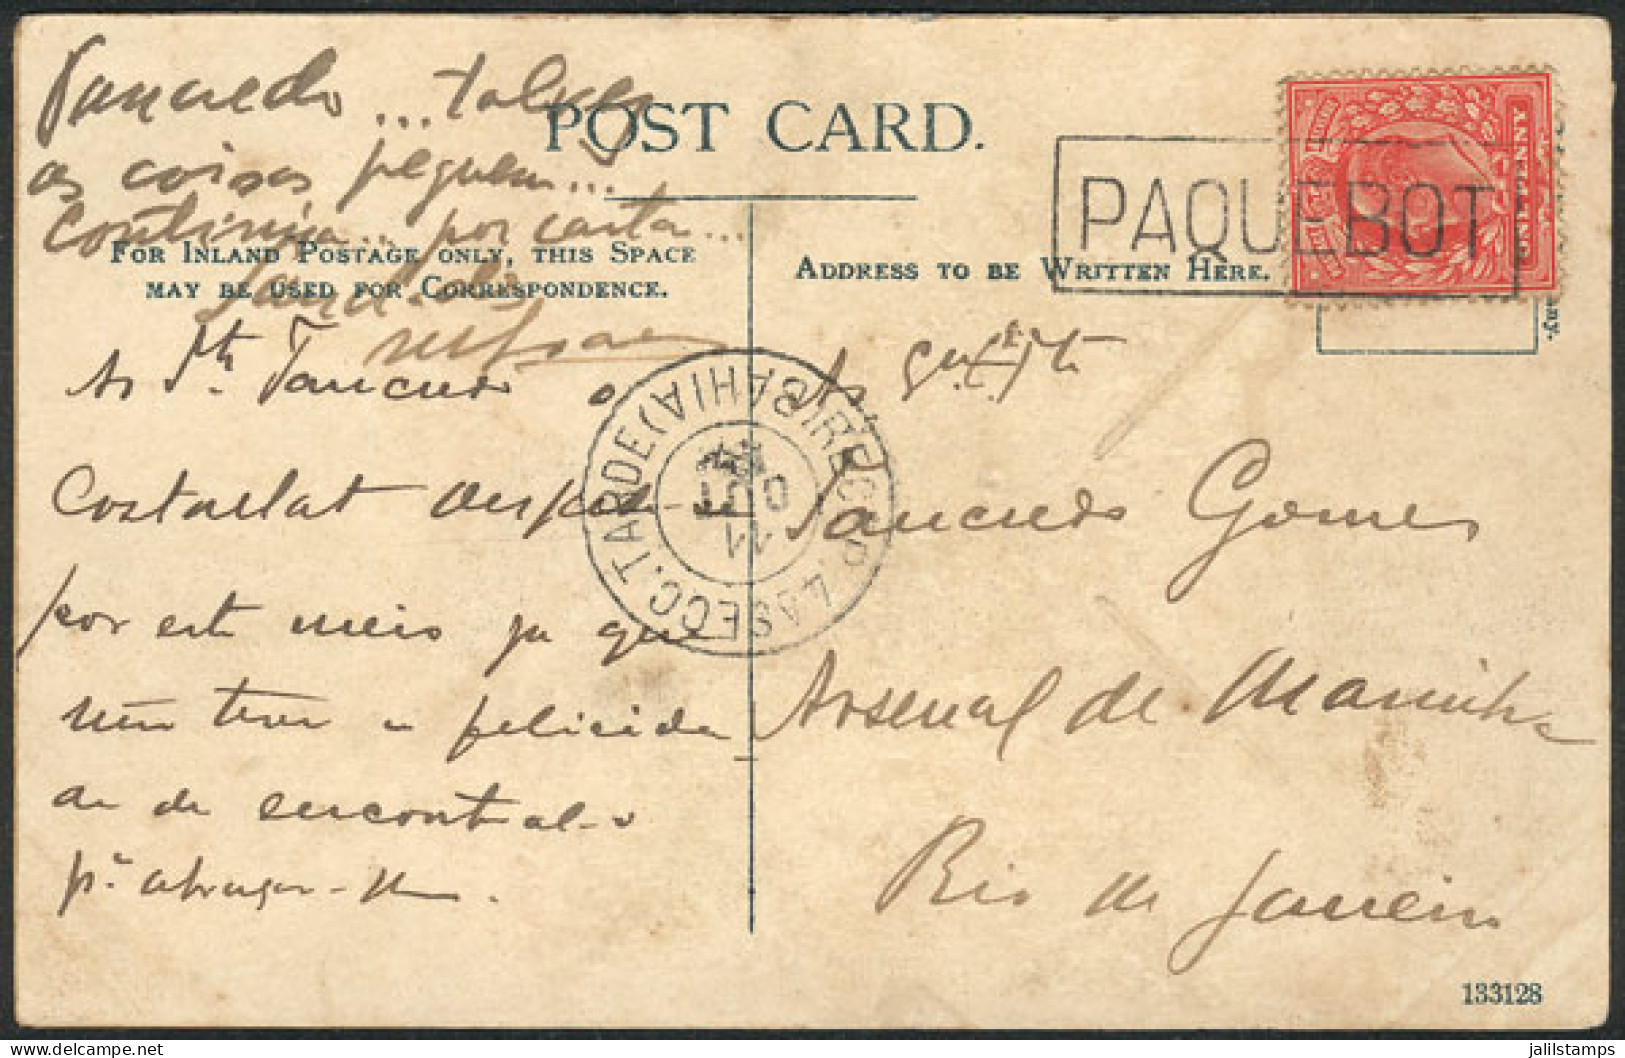 Tancredo ... talvez
as coisas pequem...
Continúa... por carta...
POST CARD.
FOR INLAND POSTAGE ONLY, THIS SPACE
MAY BE USED FOR CORRESPONDENCE.
ADDRESS TO BE WRITTEN HERE.
PAQUEBOT
ONE PENNY
ny.
Tancredo o
Costallat
por este meio ja que
não teve a felicida
de de encontral-o
pª abraçar-
DIRECÇ. P. 4ª SECC. TARDE (BAHIA)
11
OUT
Tancredo Gomes
Arsenal de Marinha
Rio de Janeiro
133128
jalilstamps